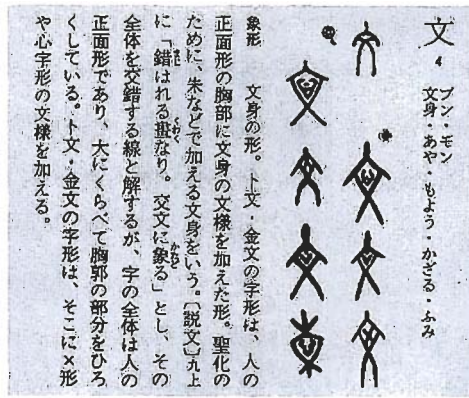 文 4
ブン・モン
文身・あや・もよう・かざる・ふみ
象形 文身の形。卜文・金文の字形は、人の
正面形の胸部に文身の文様を加えた形。聖化の
ために、朱などで加える文身をいう。〔説文〕九上
に「錯はれる畫なり。交文に象る」とし、その
全体を交錯する線と解するが、字の全体は人の
正面形であり、大にくらべて胸郭の部分をひろ
くしている。卜文・金文の字形は、そこに×形
や心字形の文様を加える。